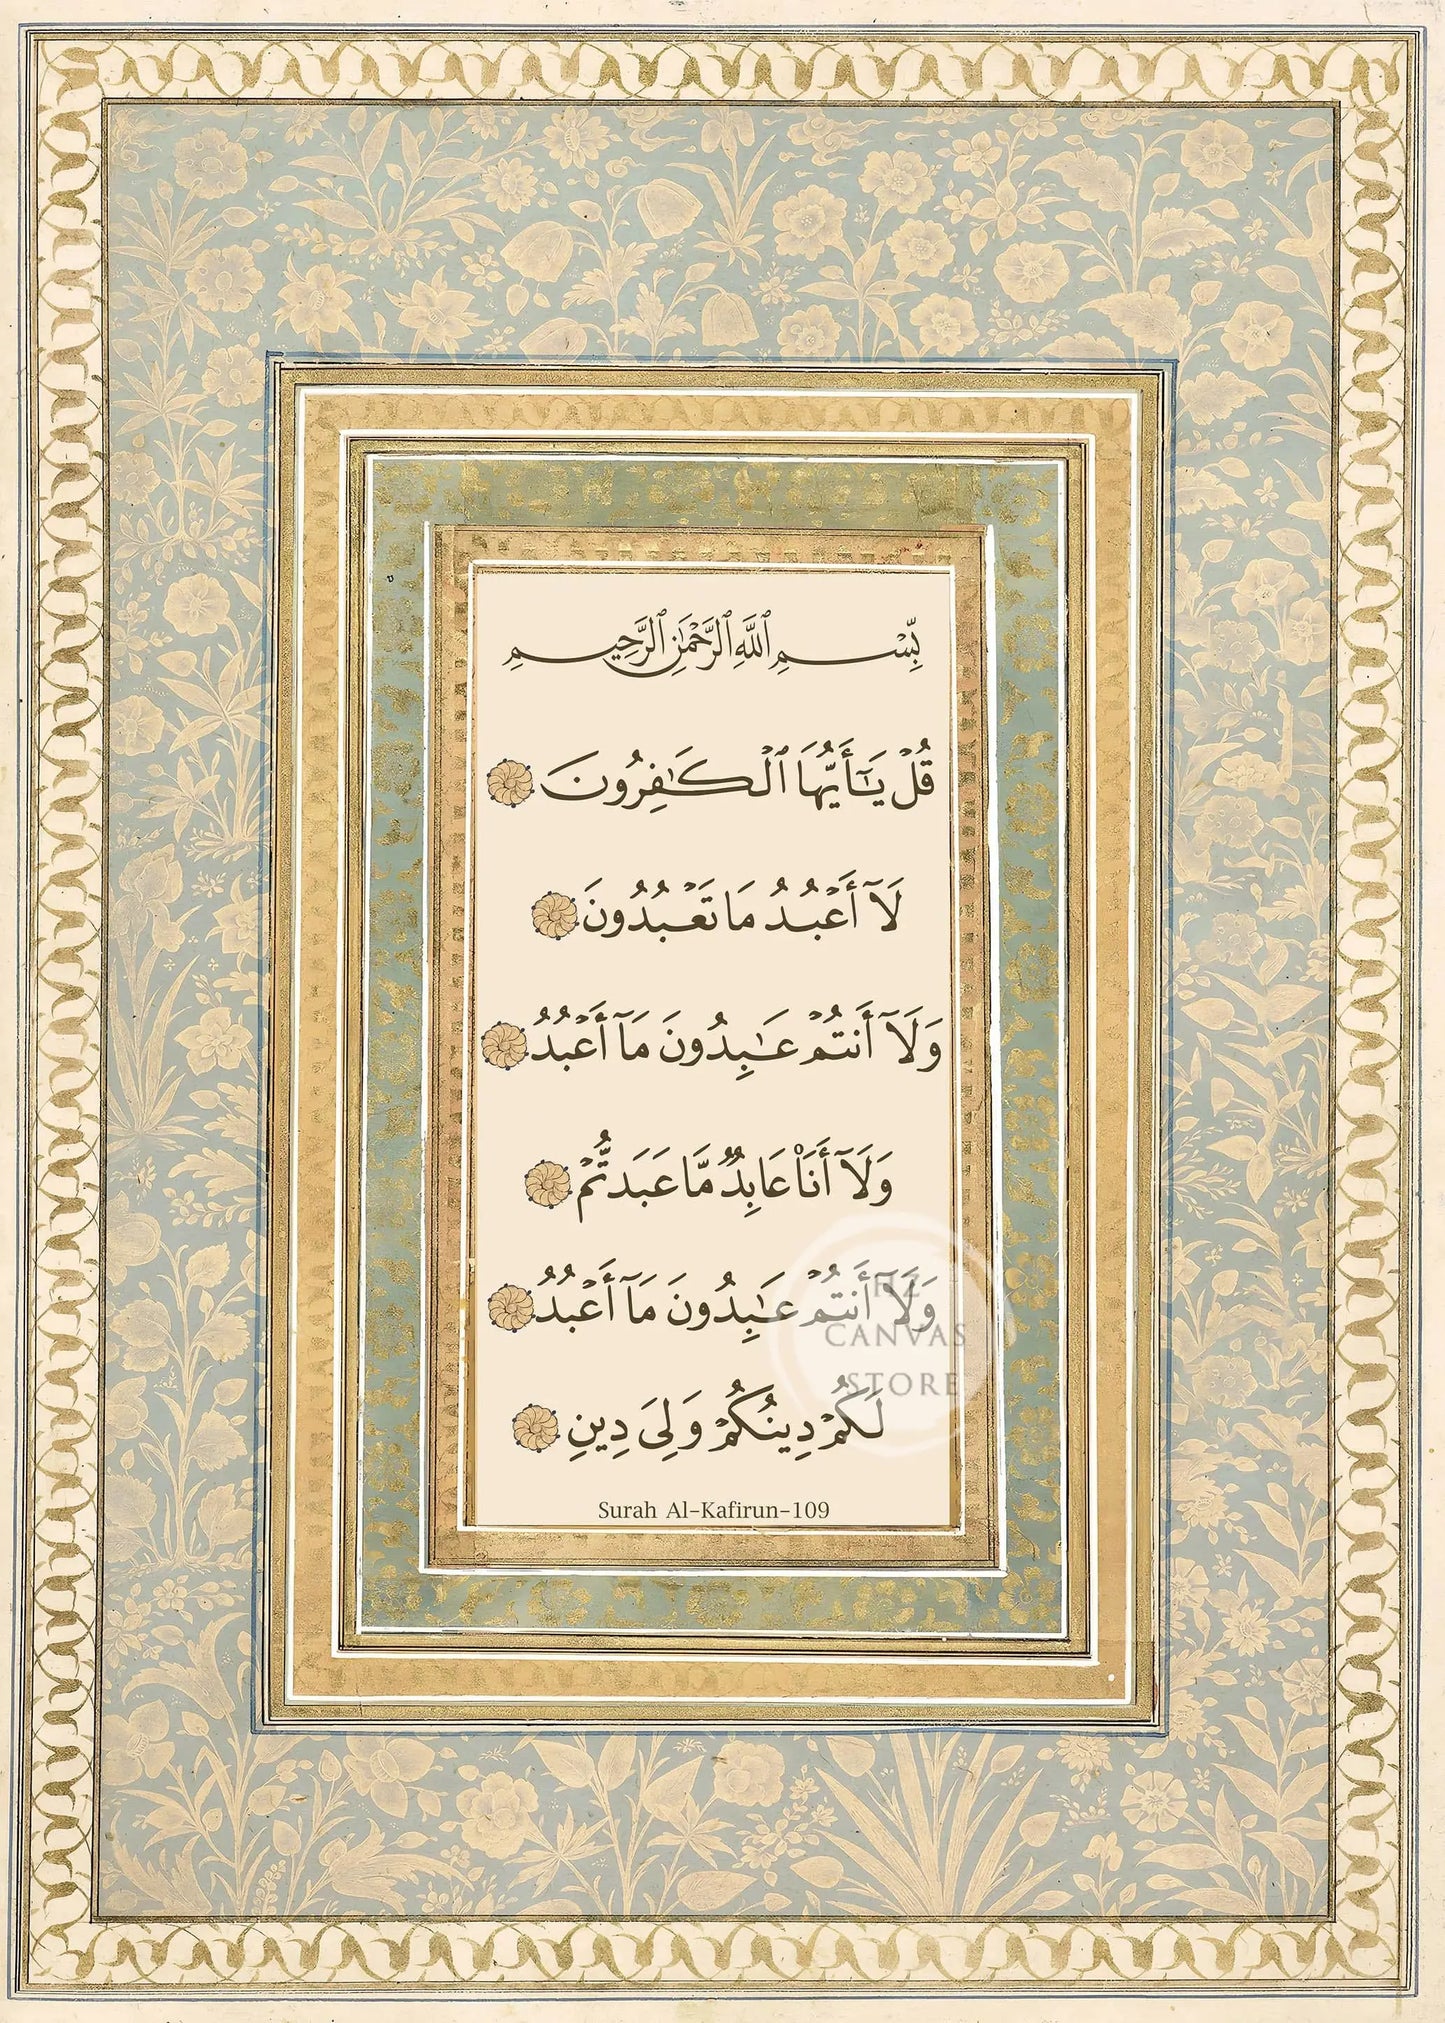 بِّسْمِ ٱللَّهِ ٱلرَّحْمَٰنِ ٱلرَّحِيمِ
قُلْ يَـٰٓأَيُّهَا ٱلْكَـٰفِرُونَ
لَآ أَعْبُدُ مَا تَعْبُدُونَ
وَلَآ أَنتُمْ عَـٰبِدُونَ مَآ أَعْبُدُ
وَلَآ أَنَا۠ عَابِدٌ مَّا عَبَدتُّمْ
وَلَآ أَنتُمْ عَـٰبِدُونَ مَآ أَعْبُدُ
لَكُمْ دِينُكُمْ وَلِىَ دِينِ
Surah Al-Kafirun-109
CANVAS
STORE